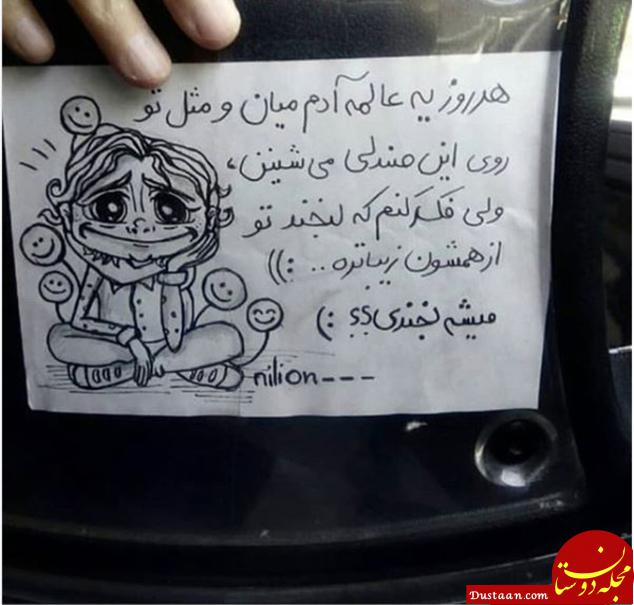 هرروز یه عالمه آدم میان و مثل تو
روی این صندلی می شینن،
ولی فکر کنم که لبخند تو
از همشون زیباتره .. :))
میشه بخندی؟؟ :)
nilion---
مجله دوستان
Dustaan.com